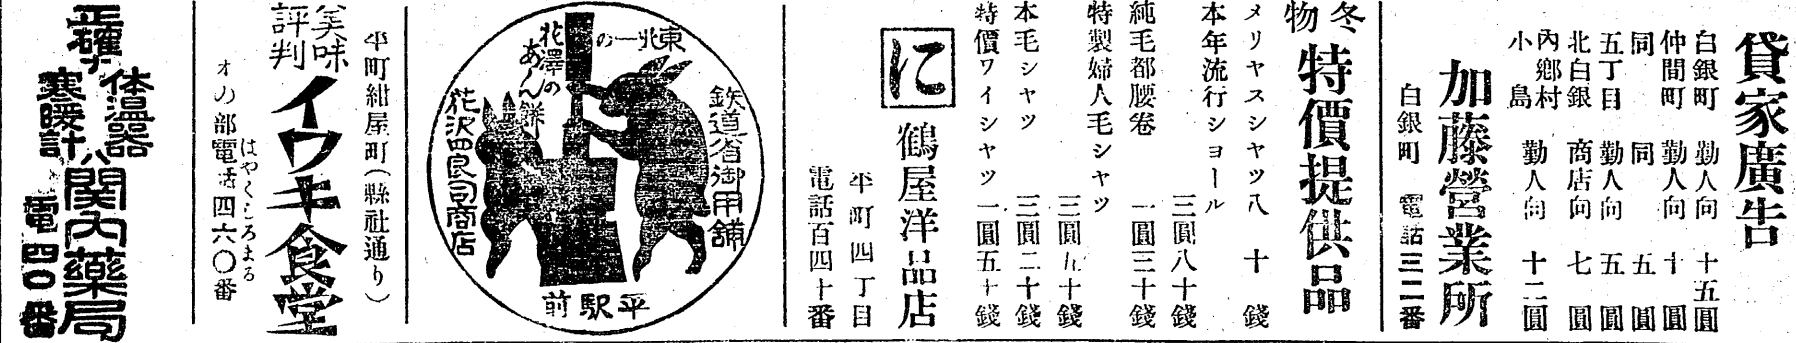 貸家廣告
白銀町 勤人向 十五圓
仲間町 勤人向 十圓
同 同 五圓
五丁目 勤人向 五圓
北白銀 商店向 七圓
內鄕村
小島 勤人向 十二圓
加藤營業所
白銀町 電話三二番
冬物 特價提供品
メリヤスシャツ 八十錢
本年流行ショール 三圓八十錢
純毛都腰卷 一圓三十錢
特製婦人毛シャツ 三圓五十錢
本毛シャツ 三圓二十錢
特價ワイシャツ 一圓五十錢
に
鶴屋洋品店
平町四丁目
電話百四十番
東北一の
花澤のあん餅
鉄道省御用舗
花沢四良司商店
平駅前
平町紺屋町(縣社通り)
美味
評判
イワキ食堂
はやくしろまる
オの部電話四六〇番
正確ナ
体温器
寒暖計ハ
関内藥局
電四〇番